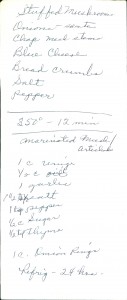 Stuffed Mushrooms
Remove - stems
Chop mush stems
Blue Cheese
Bread Crumbs
Salt
Pepper
350° - 12 min
marinated Mush/
Artichok
1 c vinegar
½ c oil
1 garlic
salt
pepper
sugar
thyme
1 c. Onion Rings
Refrig - 24 hrs.